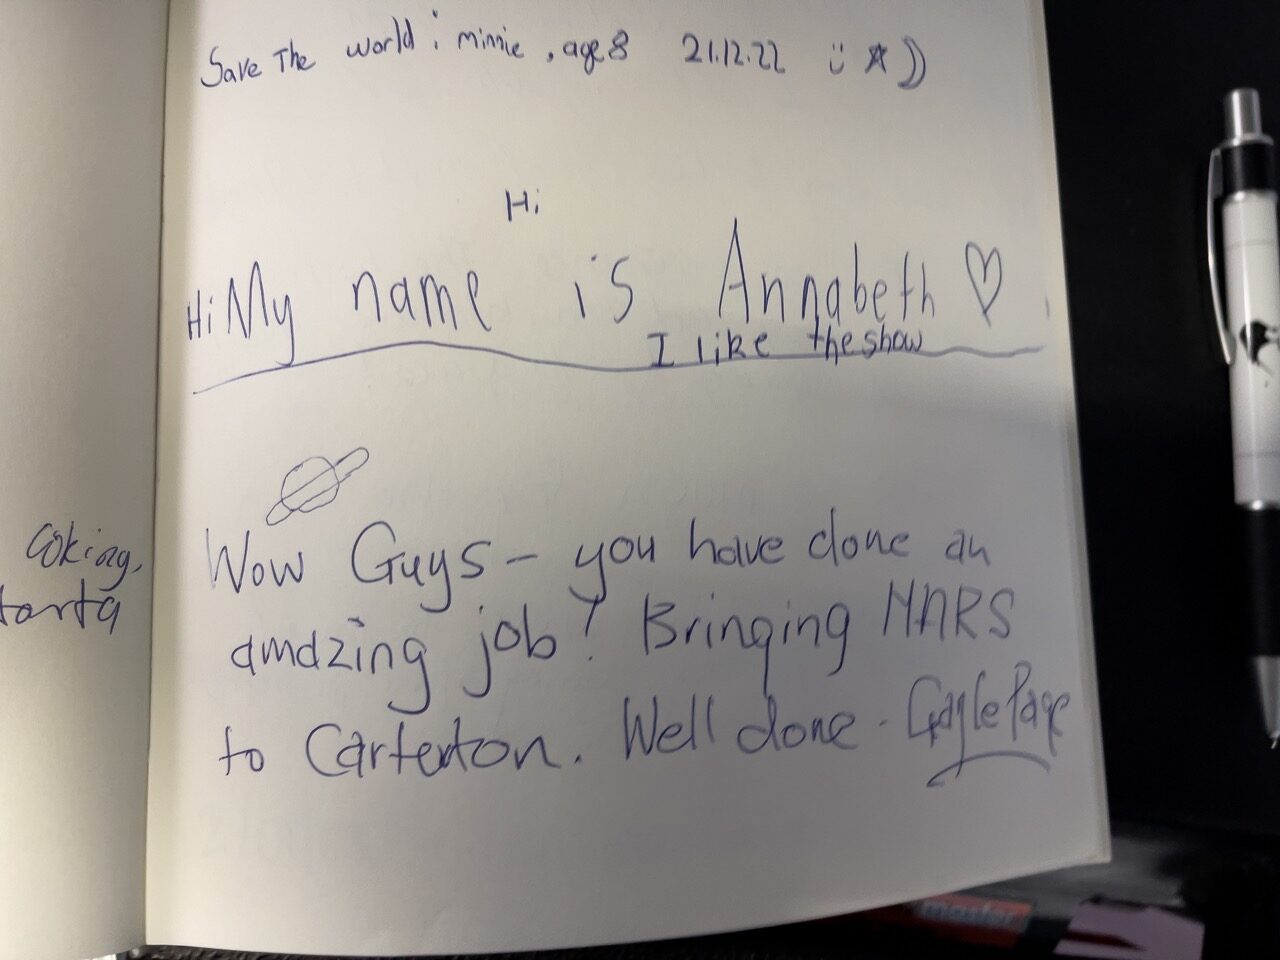 Save The world ; minnie , age 8 21.12.22 :)
Hi
Hi My name is Annabeth
I like the show
Wow Guys – you have done an
amazing job! Bringing MARS
to Carterton. Well done -